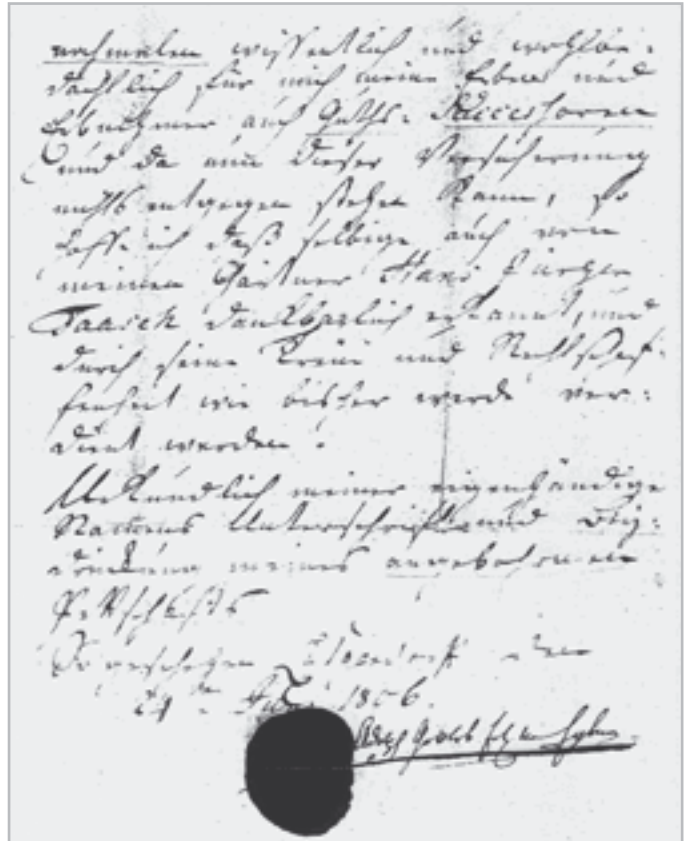 nochmalen wissentlich und wohlbe-
dächtlich für mich meine Erben und
Erbnehmer auch Guths-Successoren
und da nun dieser Versicherung
nichts entgegen stehen kann, so
hoffe ich daß selbige auch von
meinem Gärtner Hans Jürgen
Paasch dankbarlich erkannt, und
durch seine Treue und Rechtschaf-
fenheit wie bisher werde ver-
dient werden.
Urkundlich meiner eigenhändige
Namens Unterschrift und Bey-
drückung meines angebohrnen
Pettschafts
So geschehen den
24ten 1806.